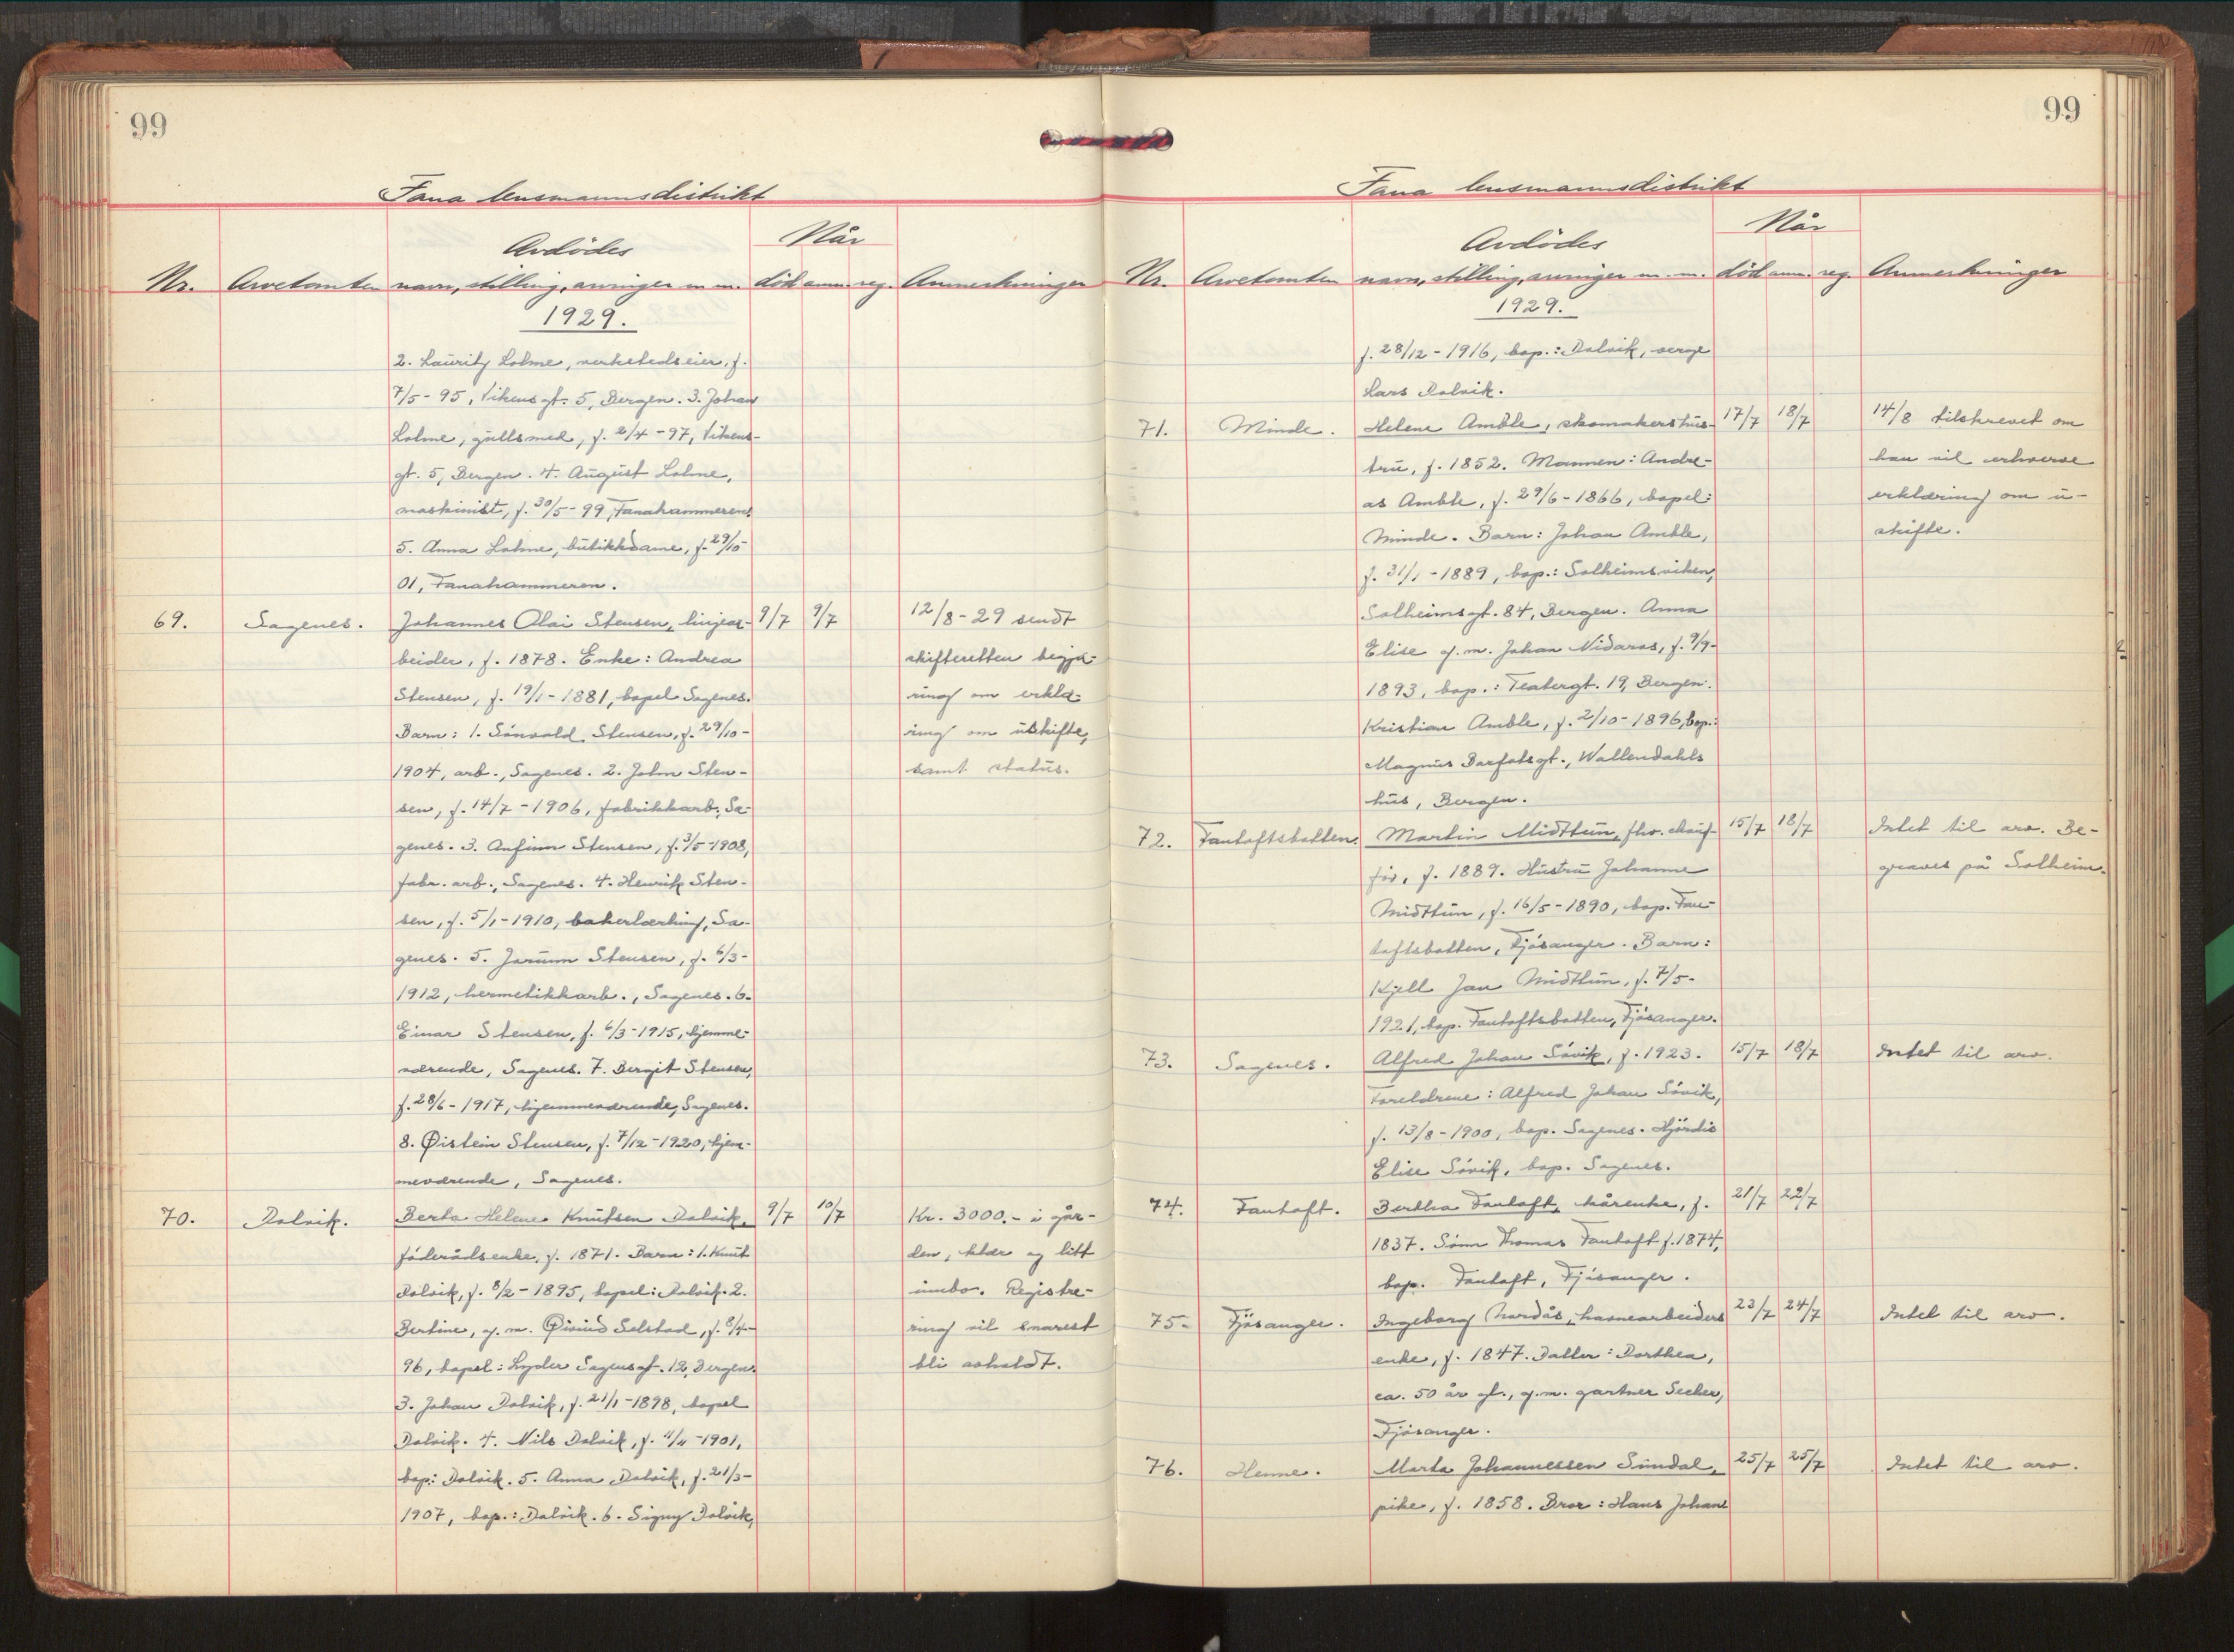 99
Fana lensmannsdistrikt
Når
Avdödes
Nr. Arvetomten navn, stilling, arvinger m. m. död anm. reg. Anmerkninger
1929.
2. Lauritz Lohne, verkstedseier, f.
7/5 - 95, Vikensgt. 5, Bergen. 3. Johan
Lohne, gullsmed, f. 2/4 - 97, Vikens-
gt. 5, Bergen. 4. August Lohne,
maskinist, f. 30/5 - 99, Fanahammeren.
5. Anna Lohne, butikkdame, f. 29/10
01, Fanahammeren.
69. Sagenes. Johannes Olai Stensen, linjear- 9/7 9/7 12/8 - 29 sendt
beider, f. 1878. Enke: Andrea skifteretten begjæ-
Stensen, f. 19/1 - 1881, bopel Sagenes. ring om erklæ-
Barn: 1. Sönvald Stensen, f. 29/10 - ring om uskifte,
1904, arb., Sagenes. 2. John Sten- samt status.
sen, f. 14/7 - 1906, fabrikkarb., Sa-
genes. 3. Anfinn Stensen, f. 3/5 - 1908,
fabr. arb., Sagenes. 4. Henrik Sten-
sen, f. 5/1 - 1910, bakerlærling, Sa-
genes. 5. Jorunn Stensen, f. 6/3 -
1912, hermetikkarb., Sagenes. 6.
Einar Stensen, f. 6/3 - 1915, hjemme-
værende, Sagenes. 7. Bergit Stensen,
f. 28/6 - 1917, hjemmeværende, Sagenes.
8. Øistein Stensen, f. 7/12 - 1920, hjem-
meværende, Sagenes.
70. Dolvik. Berta Helene Knutsen Dolvik, 9/7 10/7 Kr. 3000.- i går-
föderådsenke, f. 1871. Barn: 1. Knut den, klær og litt
Dolvik, f. 8/2 - 1895, bopel: Dolvik. 2. innbo. Registre-
Bertine, g. m. Øivind Selstad, f. 8/4 - ring vil snarest
96, bopel: Lyder Sagensgt. 12, Bergen. bli avholdt.
3. Johan Dolvik, f. 21/1 - 1898, bopel
Dolvik. 4. Nils Dolvik, f. 11/11 - 1901,
bop: Dolvik. 5. Anna Dolvik, f. 21/3 -
1907, bop.: Dolvik. 6. Signy Dolvik,
99
Fana lensmannsdistrikt
Når
Avdödes
Nr. Arvetomten navn, stilling, arvinger m. m. död anm. reg. Anmerkninger
1929.
f. 28/12 - 1916, bop.: Dolvik, verge
Lars Dolvik.
71. Minde. Helene Amble, skomakershus- 17/7 18/7 14/8 tilskrevet om
tru, f. 1852. Mannen: Andre- han vil erhverve
as Amble, f. 29/6 - 1866, bopel: erklæring om u-
Minde. Barn: Johan Amble, skifte.
f. 31/1 - 1889, bop.: Solheimsviken,
Solheimsgt. 84, Bergen. Anna
Elise g. m. Johan Nidaros, f. 9/9 -
1893, bop.: Teatergt. 19, Bergen.
Kristian Amble, f. 2/10 - 1896, bop.:
Magnus Barfotsgt., Wallendahls
hus, Bergen.
72. Fantoftsbotten. Martin Midttun, fhv. 15/7 18/7 Intet til arv. Be-
för, f. 1889. Hustru Johanne graves på Solheim.
Midttun, f. 16/5 - 1890, bop. Fan-
toftsbotten, Fjösanger. Barn:
Kjell Jan Midttun, f. 7/5 -
1921, bop. Fantoftsbotten, Fjösanger.
73. Sagenes. Alfred Johan Sövik, f. 1923. 15/7 18/7 Intet til arv.
Foreldrene: Alfred Johan Sövik,
f. 13/8 - 1900, bop. Sagenes. Hjördis
Elise Sövik, bop. Sagenes.
74. Fantoft. Bertha Fantoft, kårenke, f. 21/7 22/7
1837. Sönn Thomas Fantoft f. 1874,
bop. Fantoft, Fjösanger.
75. Fjösanger. Ingeborg Nordås, havnearbeiders 23/7 24/7 Intet til arv.
enke, f. 1847. Datter: Dorthea,
ca. 50 år gl., g. m. gartner Secher,
Fjösanger.
76. Henne. Marta Johannessen Sundal, 25/7 25/7 Intet til arv.
pike, f. 1858. Bror: Hans Johan